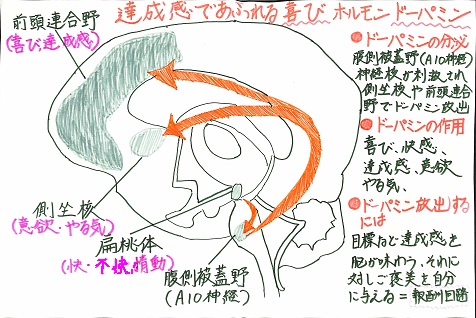 達成感であふれる喜びホルモンドーパミン
前頭連合野
(喜び達成感)
側坐核
(意欲・やる気)
扁桃体
(快・不快情動)
腹側被蓋野
(A10神経)
●ドーパミンの分泌
腹側被蓋野(A10神経)
神経核が刺激され
側坐核や前頭連合
野でドーパミン放出
●ドーパミンの作用
喜び、快感、
達成感、意欲
やる気、
●ドーパミン放出する
には
目標など達成感を
脳が味わう、それに
対しご褒美を自分
に与える=報酬回路